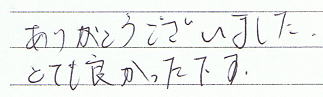 ありがとうございました.
とても良かったです.